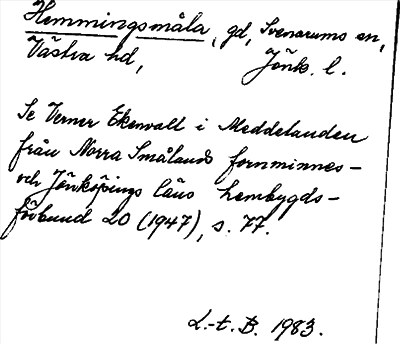 Hemmingsmåla, gd, Svenarums sn,
Västra hd, Jönk. l.
Se Verner Ekenvall i Meddelanden
från Norra Smålands fornminnes-
och Jönköpings läns hembygds-
förbund 20 (1947), s. 77.
L.-t. B. 1983.